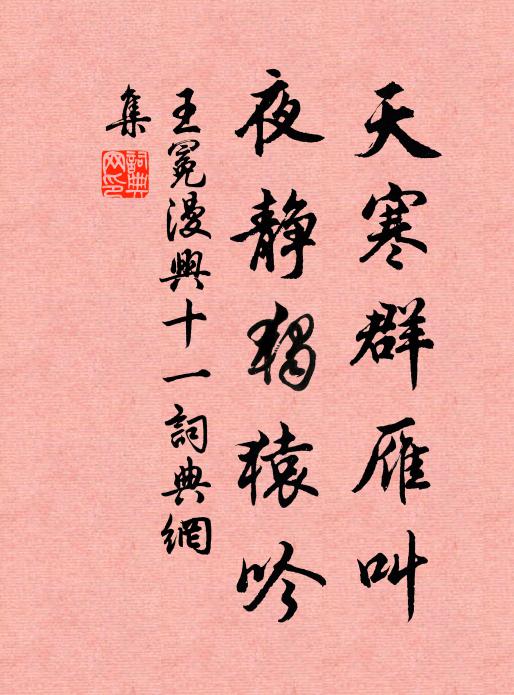 天寒群雁叫
夜静獨猿吟
王冕漫興十一詞典網
集
詞典
网印